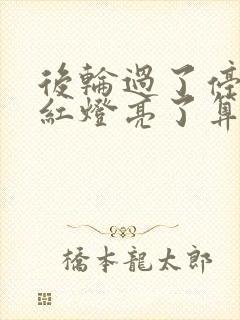 後輪過了停
紅燈亮了算
橋本龍太郎